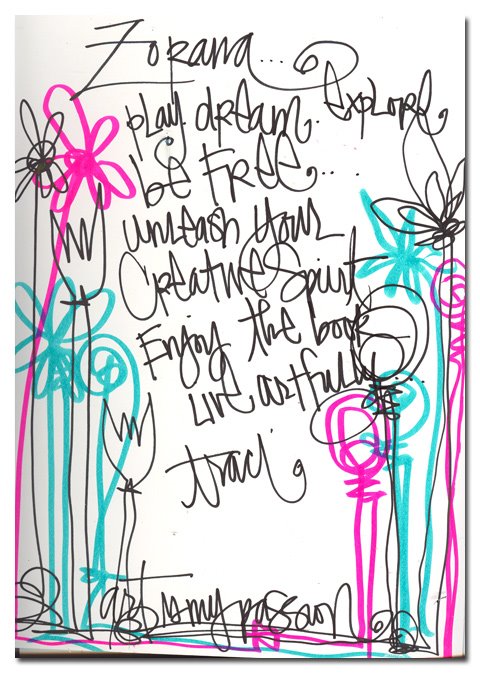 Zorana...
play. dream. explore.
be free....
unleash your
Creative Spirit
Enjoy the book
Live artfully...
traci.
art is my passion